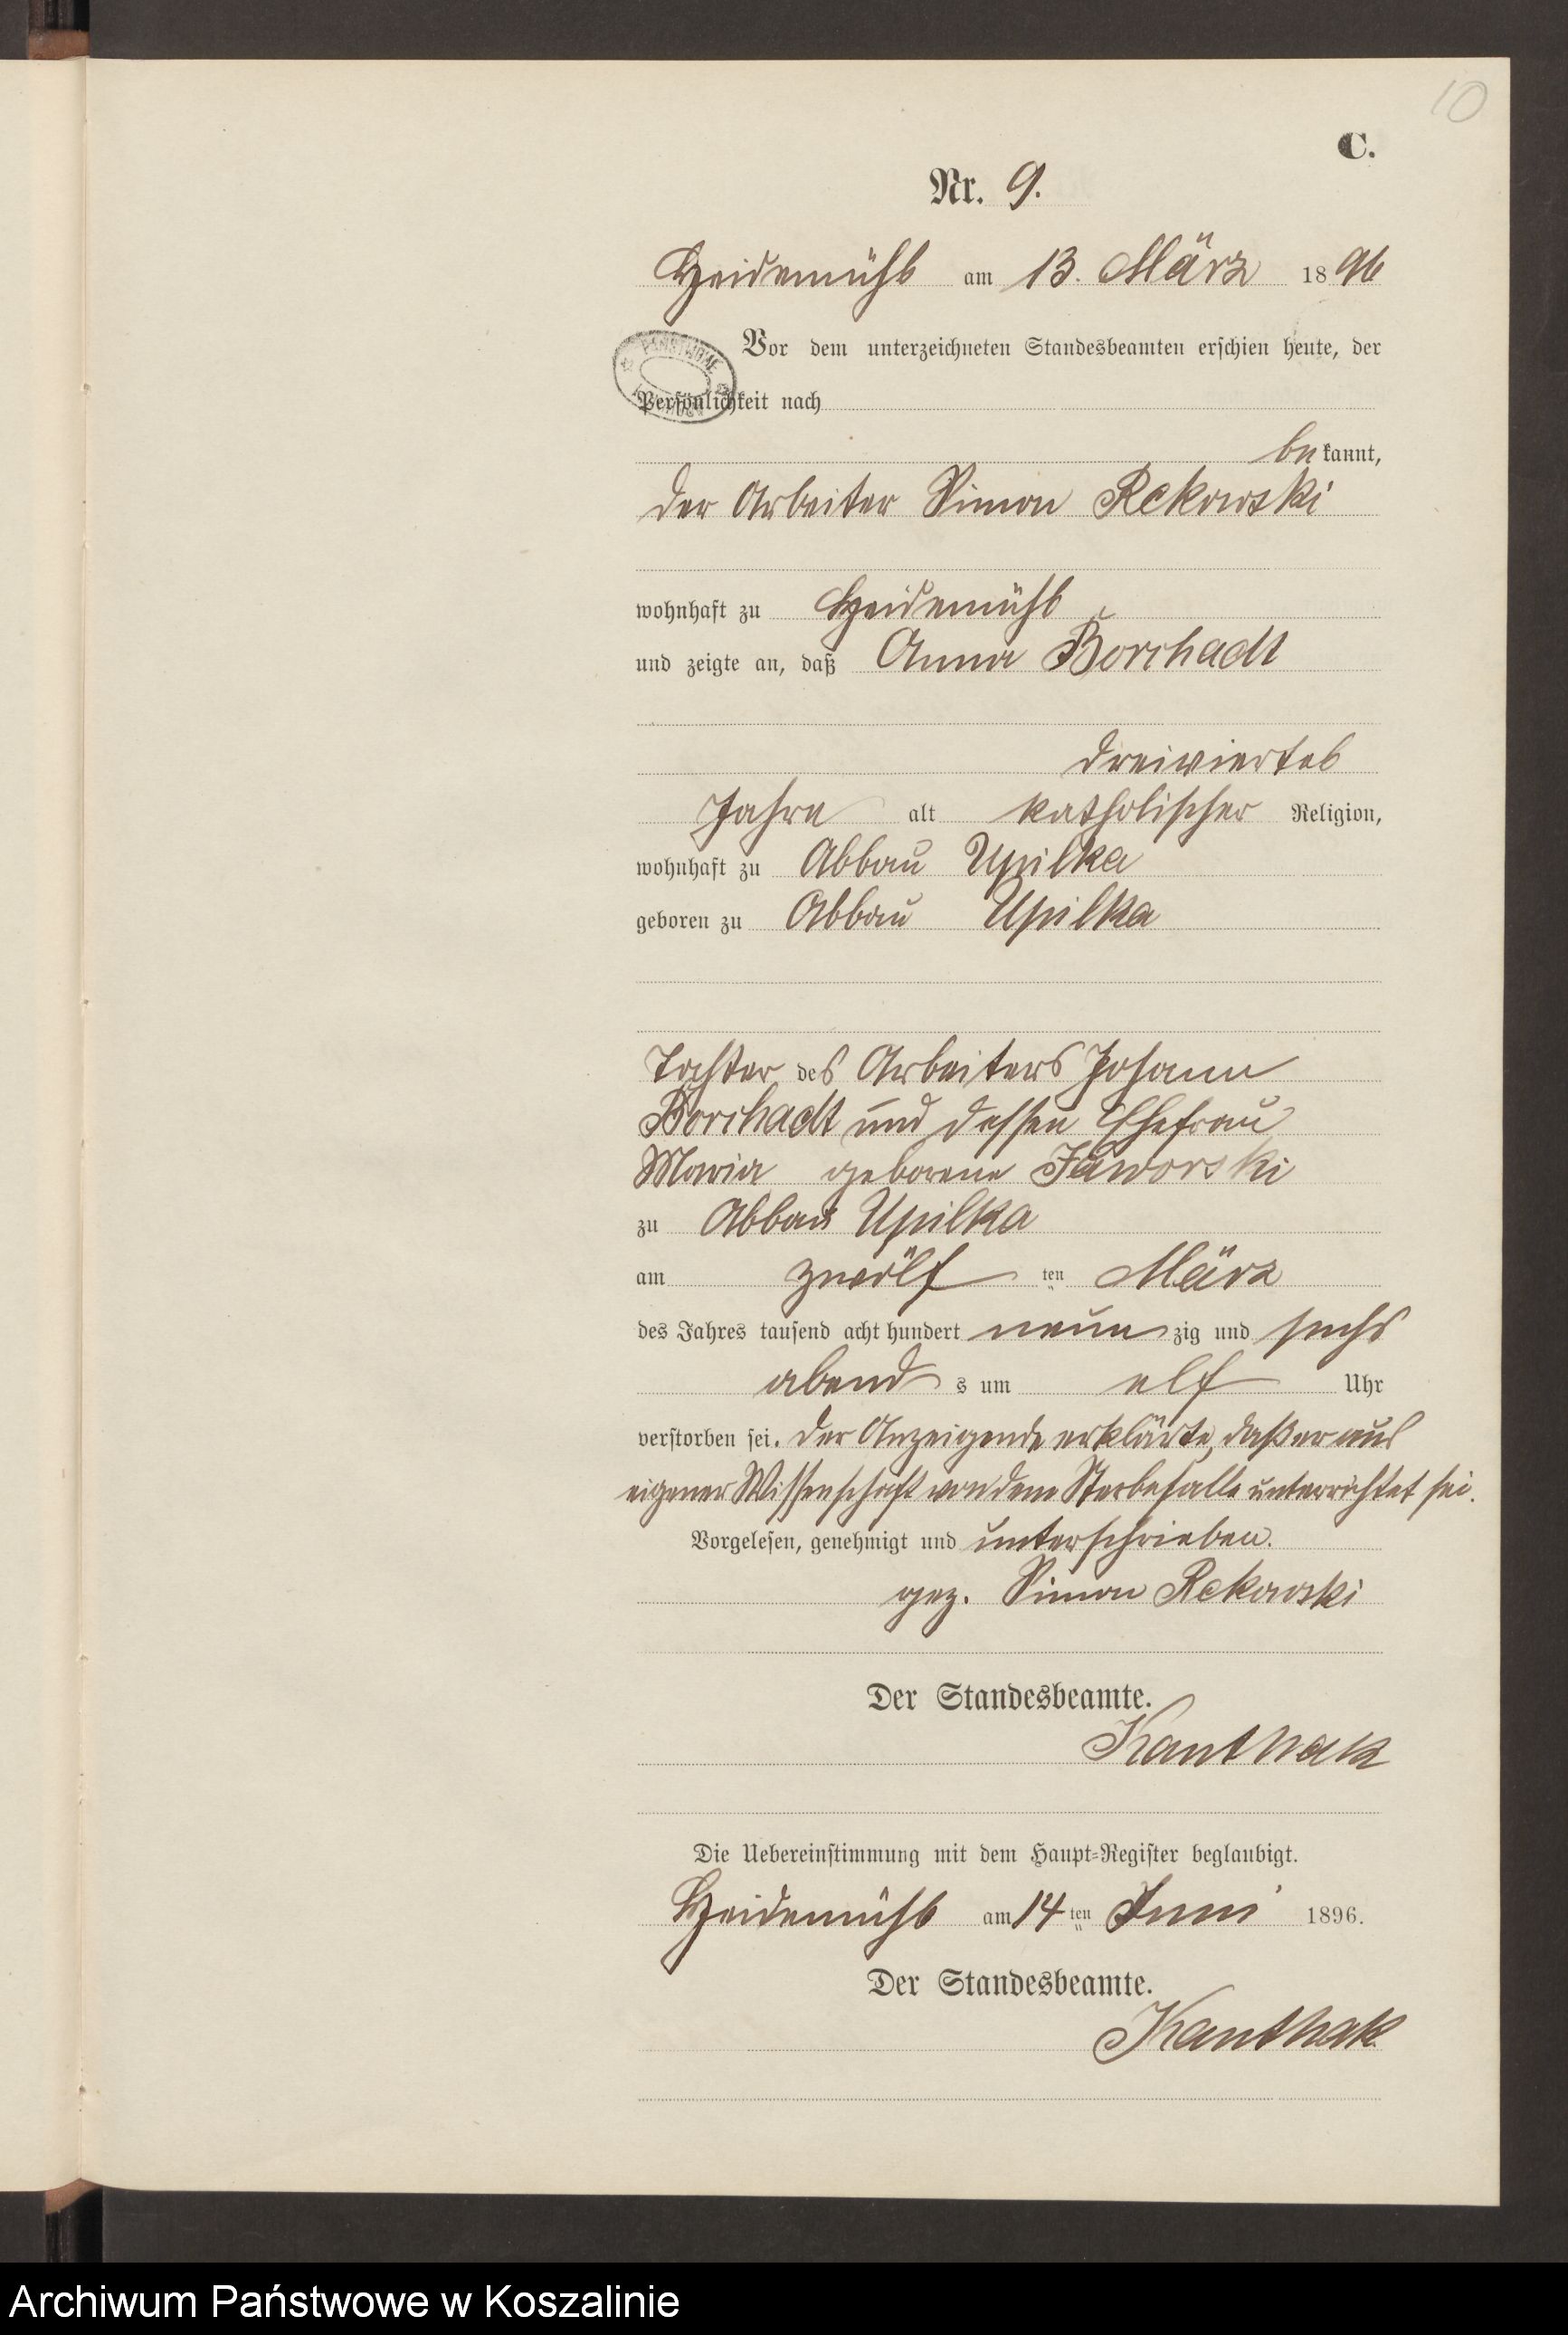 10
C.
Nr. 9.
Heidemühl am 13. März 1896
Vor dem unterzeichneten Standesbeamten erschien heute, der
Persönlichkeit nach
bekannt,
der Arbeiter Simon Rekowski
wohnhaft zu Heidemühl
und zeigte an, daß Anna Borchadt
dreiviertel
Jahre alt katholischer Religion,
wohnhaft zu Abbau Upilka
geboren zu Abbau Upilka
Tochter des Arbeiters Johann
Borchadt und dessen Ehefrau
Maria geborene Jaworski
zu Abbau Upilka
am zwölf ten März
des Jahres tausend acht hundert neunzig und sechs
abends um elf Uhr
verstorben sei. Der Anzeigende erklärte, daß er aus
eigener Wissenschaft von dem Sterbefalle unterrichtet sei.
Vorgelesen, genehmigt und unterschrieben.
gez. Simon Rekowski
Der Standesbeamte.
Kanthak
Die Uebereinstimmung mit dem Haupt-Register beglaubigt.
Heidemühl am 14 ten Juni 1896.
Der Standesbeamte.
Kanthak
Archiwum Państwowe w Koszalinie